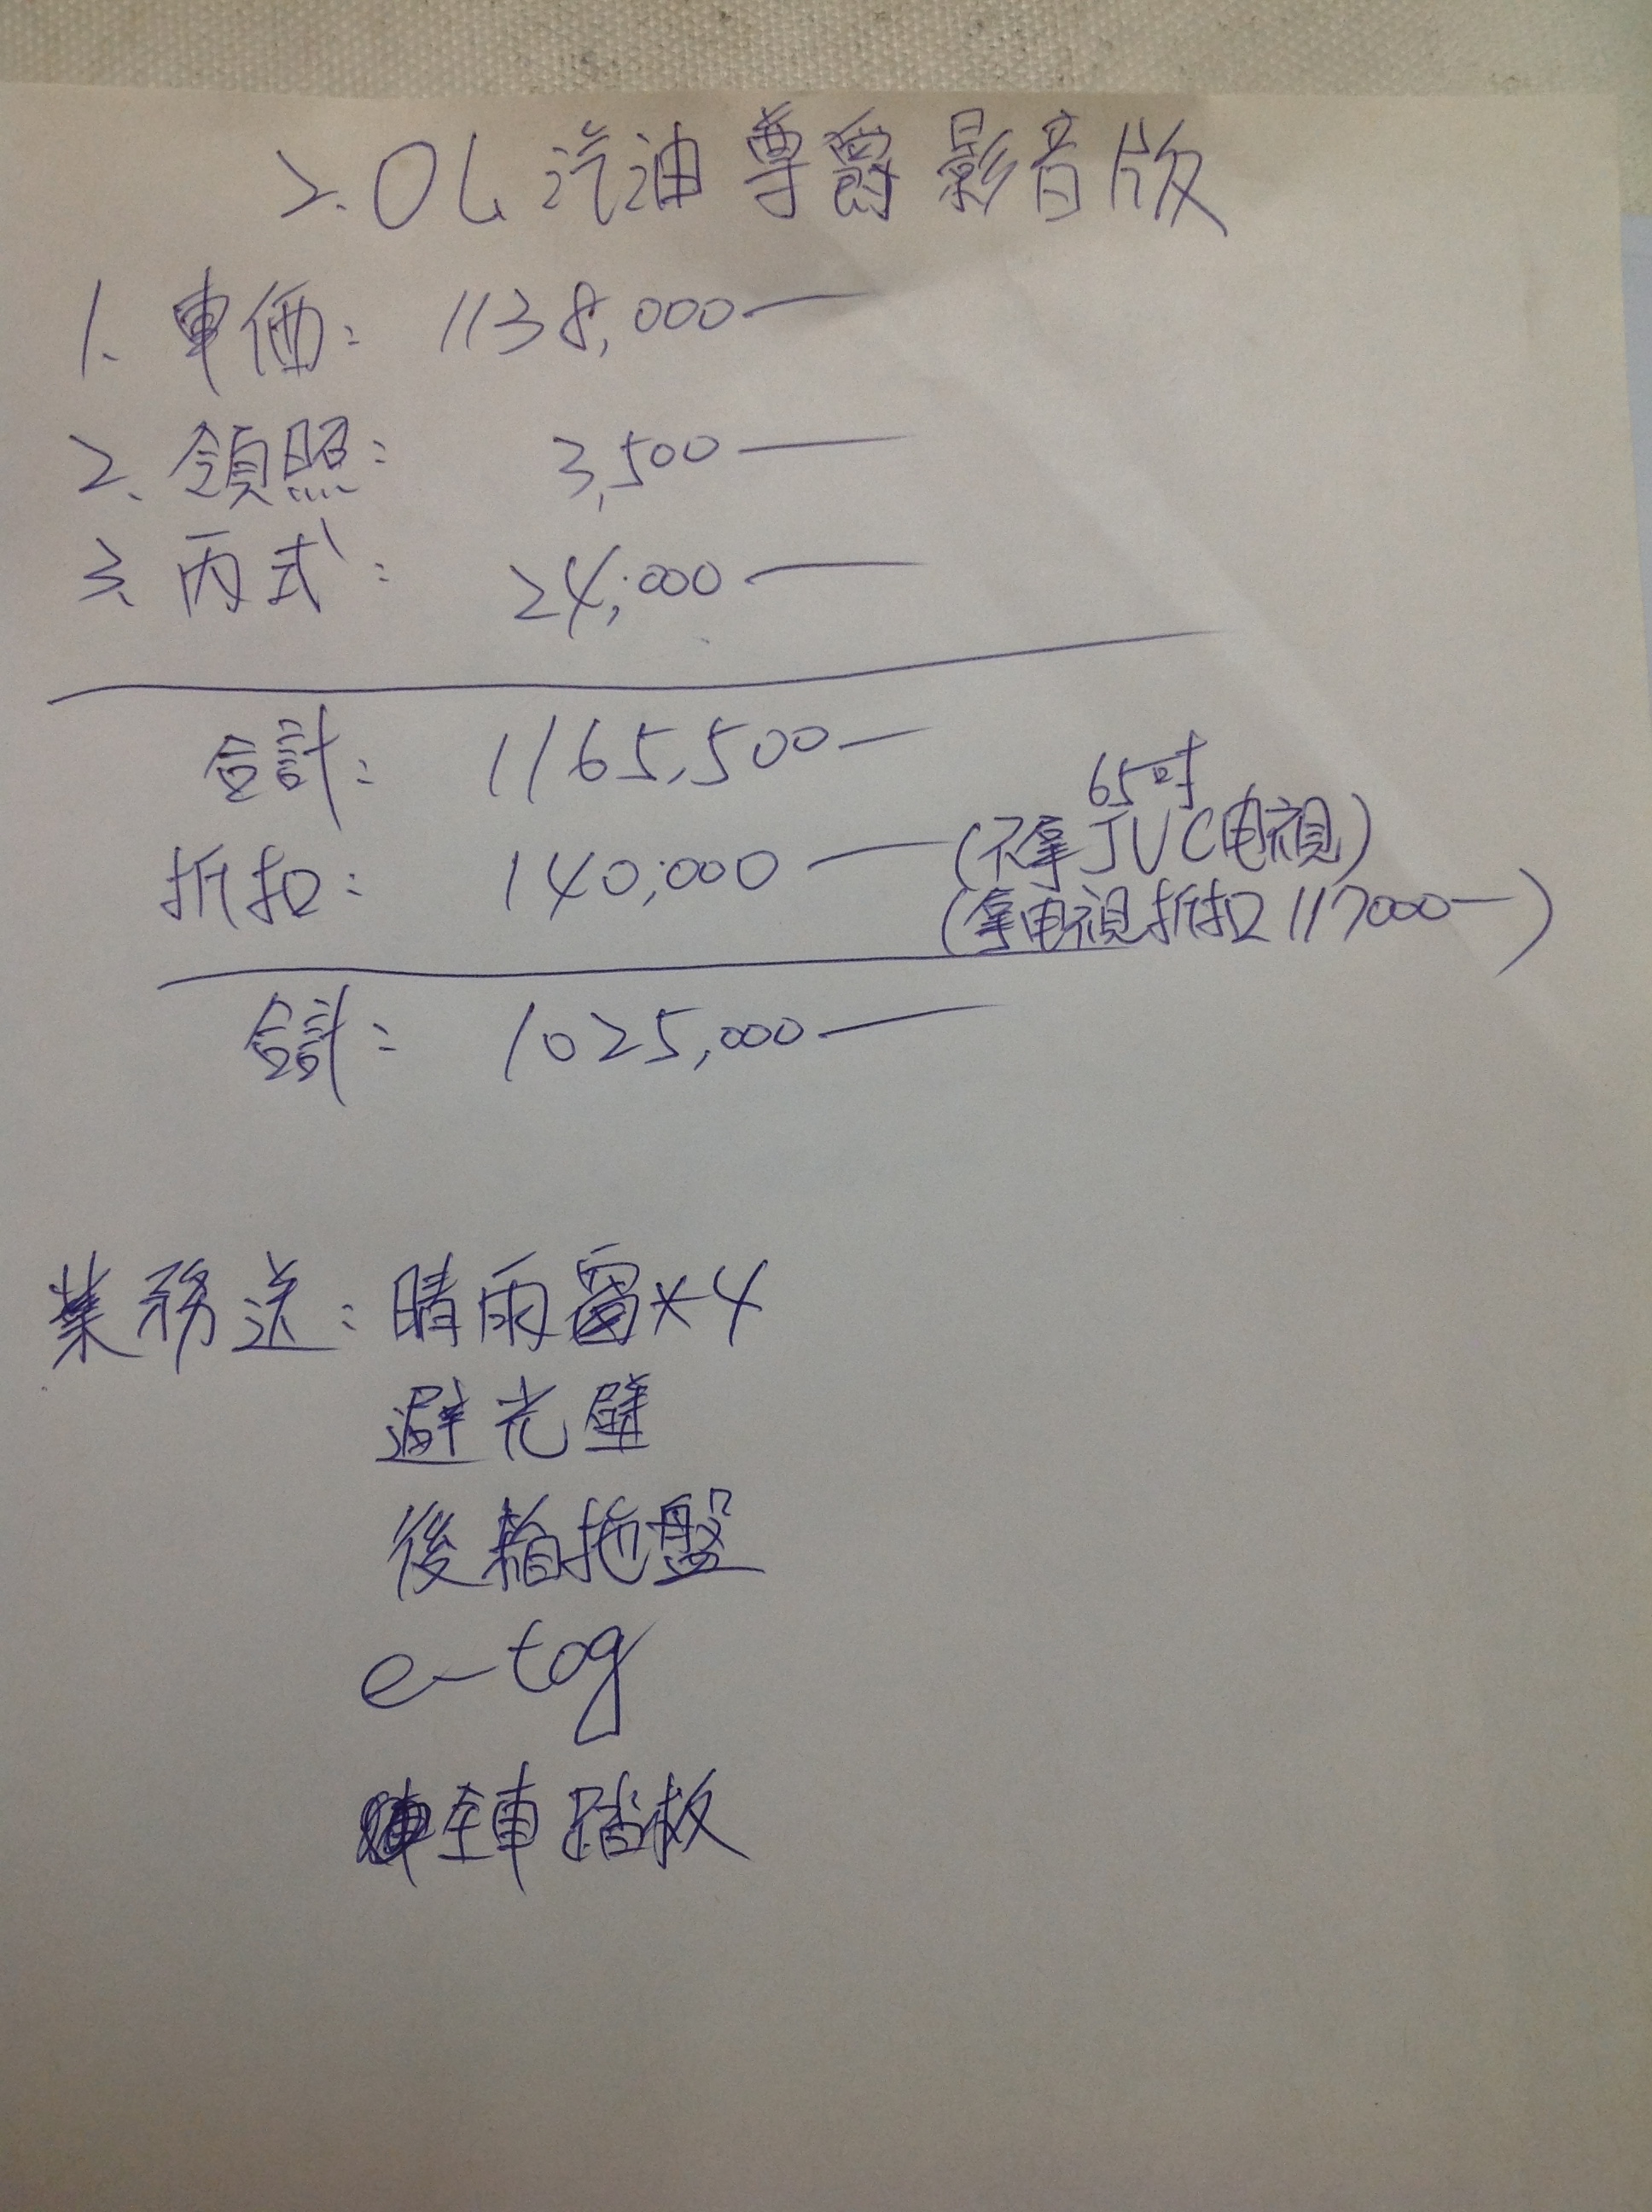 2.0L 汽油 尊爵 影音版
1、車価： 1138,000—
2、領照： 3,500—
3、丙式： 24,000—
合計： 1165,500—
65吋
折扣： 140,000—(不拿JVC电視)
(拿电視折扣 117000—)
合計： 1025,000—
業務送：晴雨窗×4
避光壁
後箱拖盤
e-tag
全車踏板